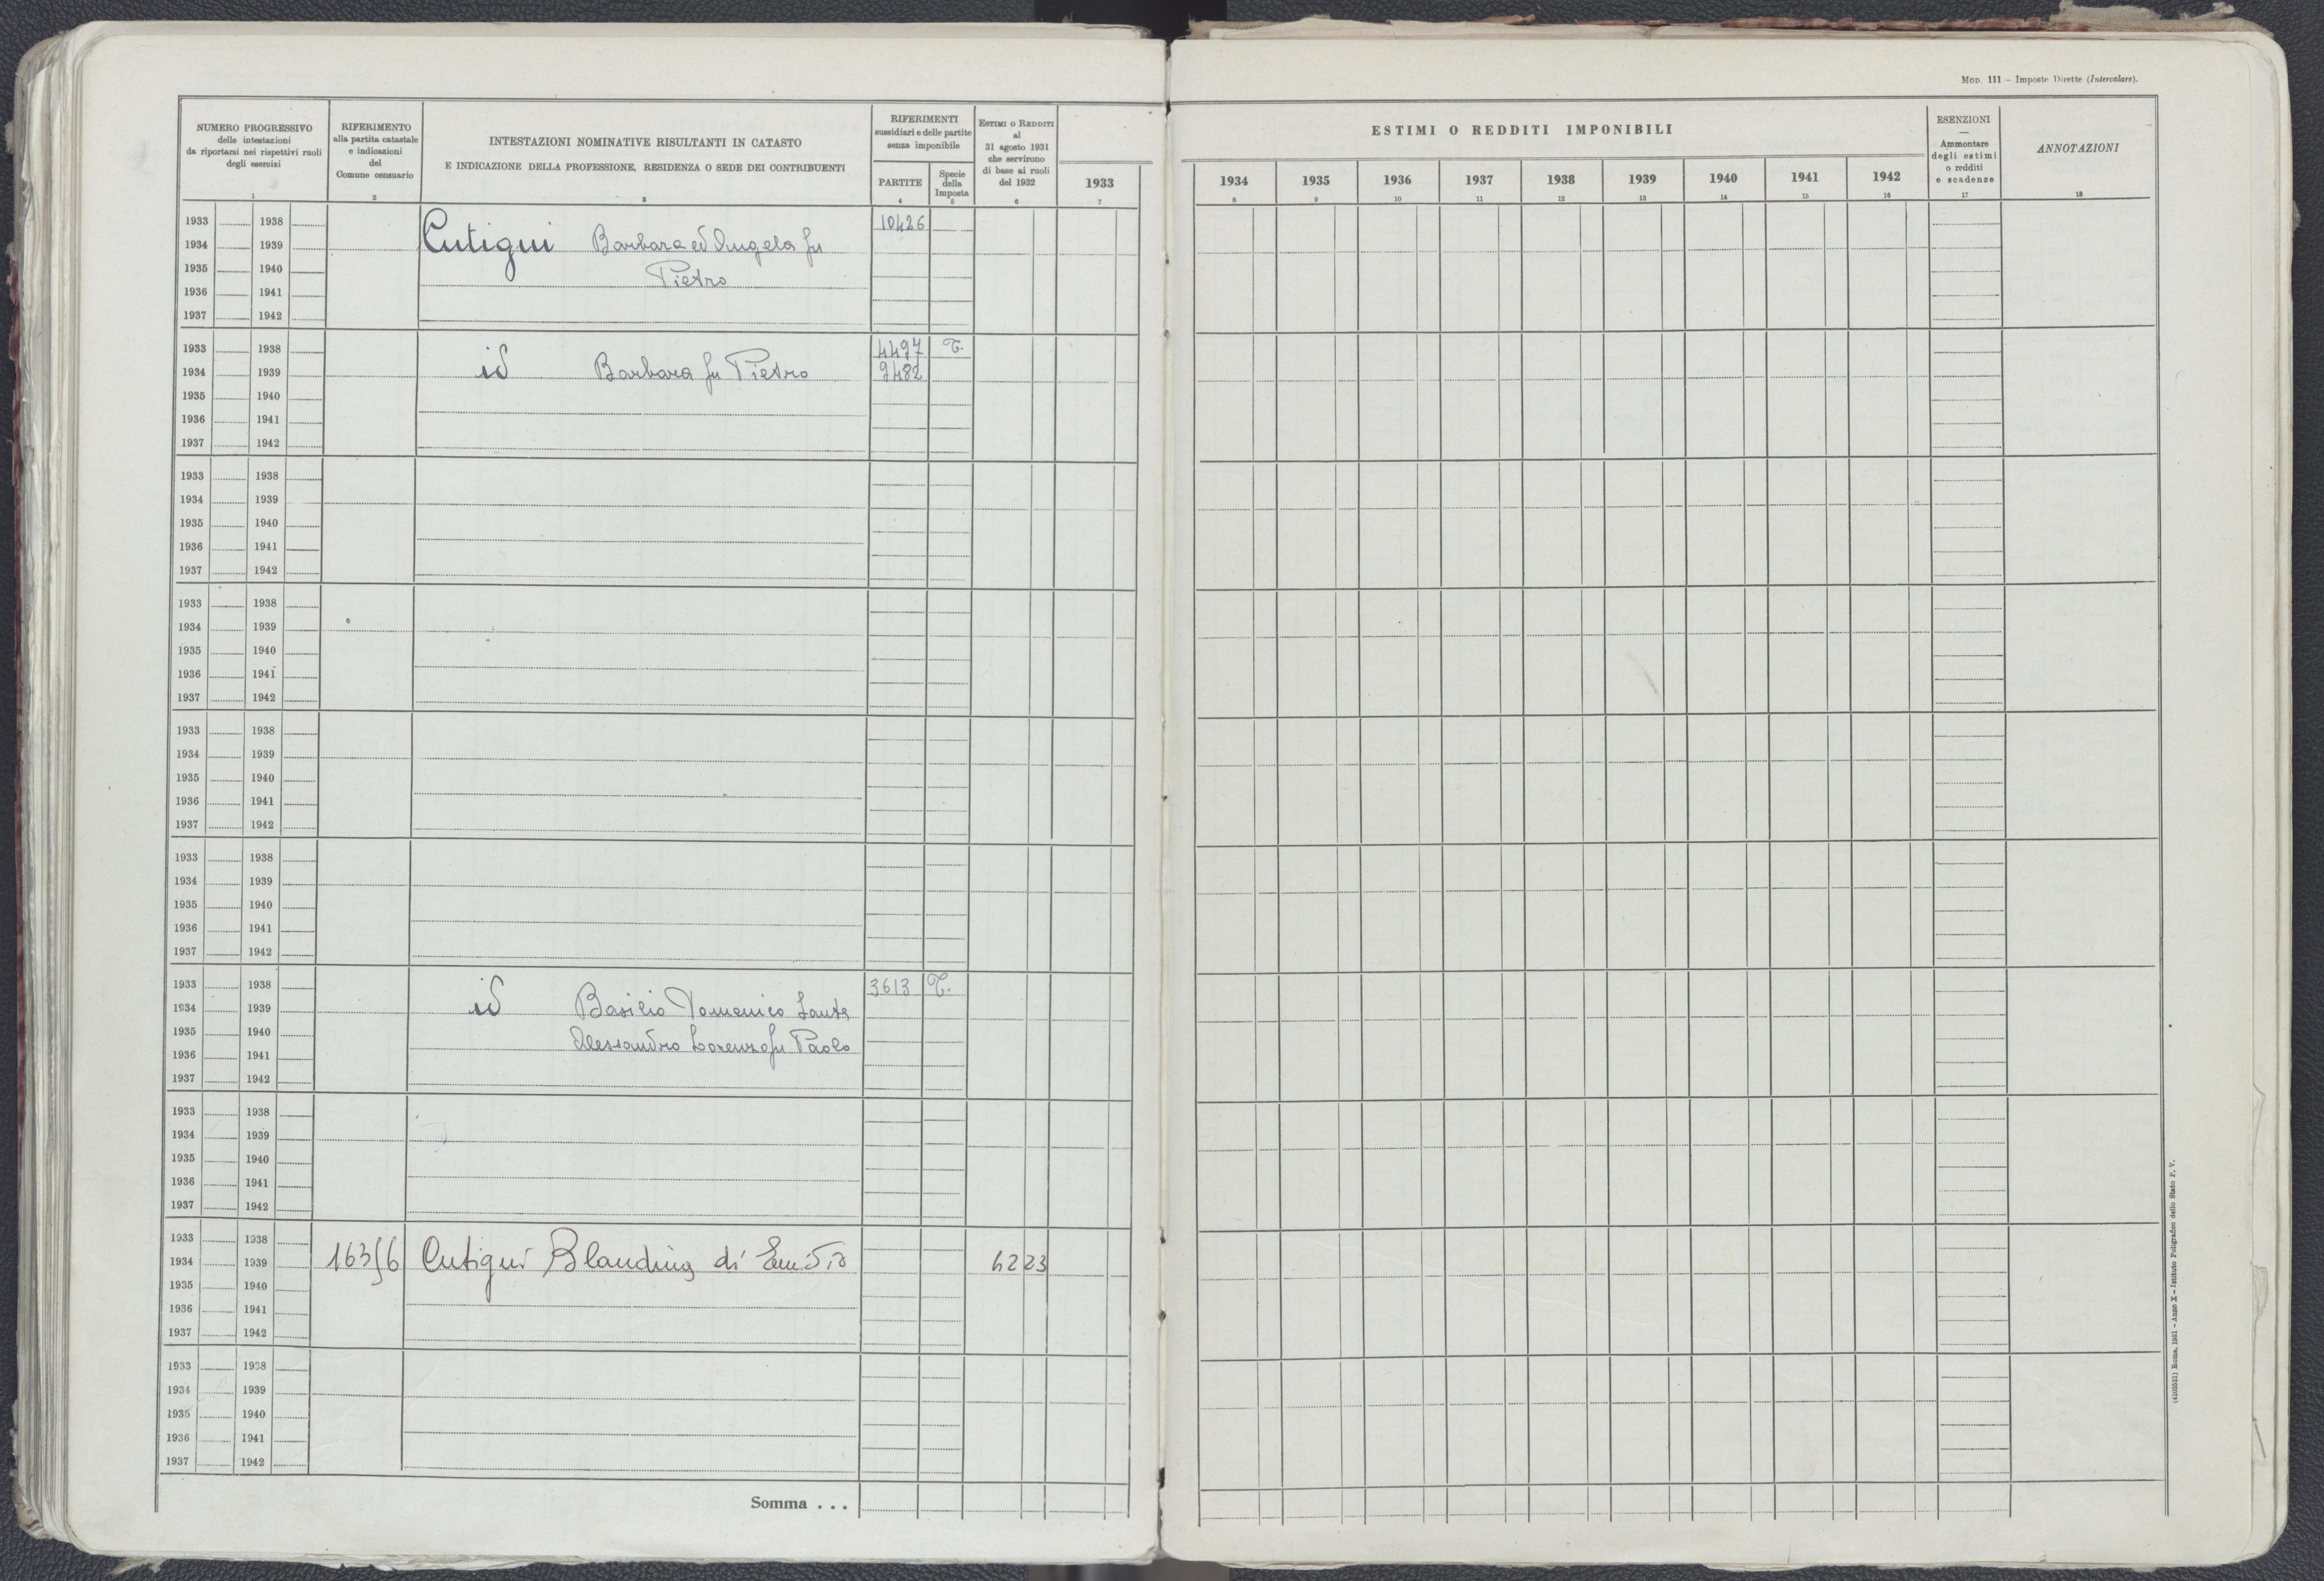 Mod. 111 – Imposte Dirette (Intercalare).
NUMERO PROGRESSIVO
delle intestazioni
da riportarsi nei rispettivi ruoli
degli esercizi
1
RIFERIMENTO
alla partita catastale
e indicazioni
del
Comune censuario
2
INTESTAZIONI NOMINATIVE RISULTANTI IN CATASTO
E INDICAZIONE DELLA PROFESSIONE, RESIDENZA O SEDE DEI CONTRIBUENTI
3
RIFERIMENTI
sussidiari e delle partite
senza imponibile
PARTITE
4
Specie
della
Imposta
5
Estimi o Redditi
al
31 agosto 1931
che servirono
di base ai ruoli
del 1932
6
1933
7
ESTIMI O REDDITI IMPONIBILI
1934 1935 1936 1937 1938 1939 1940 1941 1942
8 9 10 11 12 13 14 15 16
ESENZIONI
—
Ammontare
degli estimi
o redditi
e scadenze
17
ANNOTAZIONI
18
1933 1938 10426
1934 1939 Cutigni Barbara ed Angela fu
1935 1940 Pietro
1936 1941
1937 1942
1933 1938 4497 T.
1934 1939 id Barbara fu Pietro 9482
1935 1940
1936 1941
1937 1942
1933 1938
1934 1939
1935 1940
1936 1941
1937 1942
1933 1938
1934 1939
1935 1940
1936 1941
1937 1942
1933 1938
1934 1939
1935 1940
1936 1941
1937 1942
1933 1938
1934 1939
1935 1940
1936 1941
1937 1942
1933 1938 3613 T.
1934 1939 id Basilio Domenico Sante
1935 1940 Alessandro Lorenzo fu Paolo
1936 1941
1937 1942
1933 1938
1934 1939
1935 1940
1936 1941
1937 1942
1933 1938
1934 1939 Cutigni Blandina di 42 23
1935 1940
1936 1941
1937 1942
1933 1938
1934 1939
1935 1940
1936 1941
1937 1942
Somma . . .
Roma, 1931 – Anno X – Istituto Poligrafico dello Stato P. V.